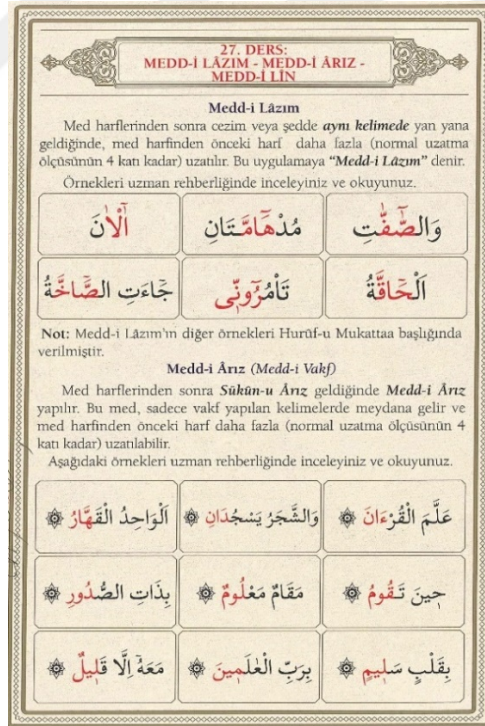 27. DERS:
MEDD-İ LÂZIM - MEDD-İ ÂRIZ -
MEDD-İ LÎN
Medd-i Lâzım
Med harflerinden sonra cezim veya şedde aynı kelimede yan yana
geldiğinde, med harfinden önceki harf daha fazla (normal uzatma
ölçüsünün 4 katı kadar) uzatılır. Bu uygulamaya "Medd-i Lâzım" denir.
Örnekleri uzman rehberliğinde inceleyiniz ve okuyunuz.
وَالصَّٓفّٰتِ مُدْهَٓامَّتَانِ آٰلْاٰنَ
اَلْحَٓاقَّةُ تَاْمُرُٓونّ۪ى جَٓاءَتِ الصَّٓاخَّةُ
Not: Medd-i Lâzım'ın diğer örnekleri Hurûf-u Mukattaa başlığında
verilmiştir.
Medd-i Ârız (Medd-i Vakf)
Med harflerinden sonra Sükûn-u Ârız geldiğinde Medd-i Ârız
yapılır. Bu med, sadece vakf yapılan kelimelerde meydana gelir ve
med harfinden önceki harf daha fazla (normal uzatma ölçüsünün 4
katı kadar) uzatılabilir.
Aşağıdaki örnekleri uzman rehberliğinde inceleyiniz ve okuyunuz.
عَلَّمَ الْقُرْءَانَ ۞ وَالشَّجَرُ يَسْجُدَانِ ۞ اَلْوَاحِدُ الْقَهَّارُ ۞
ح۪ينَ تَقُومُ ۞ مَقَامٌ مَعْلُومٌ ۞ بِذَاتِ الصُّدُورِ ۞
بِقَلْبٍ سَل۪يمٍ ۞ بِرَبِّ الْعٰلَم۪ينَ ۞ مَعَهُٓ اِلَّا قَل۪يلٌ ۞